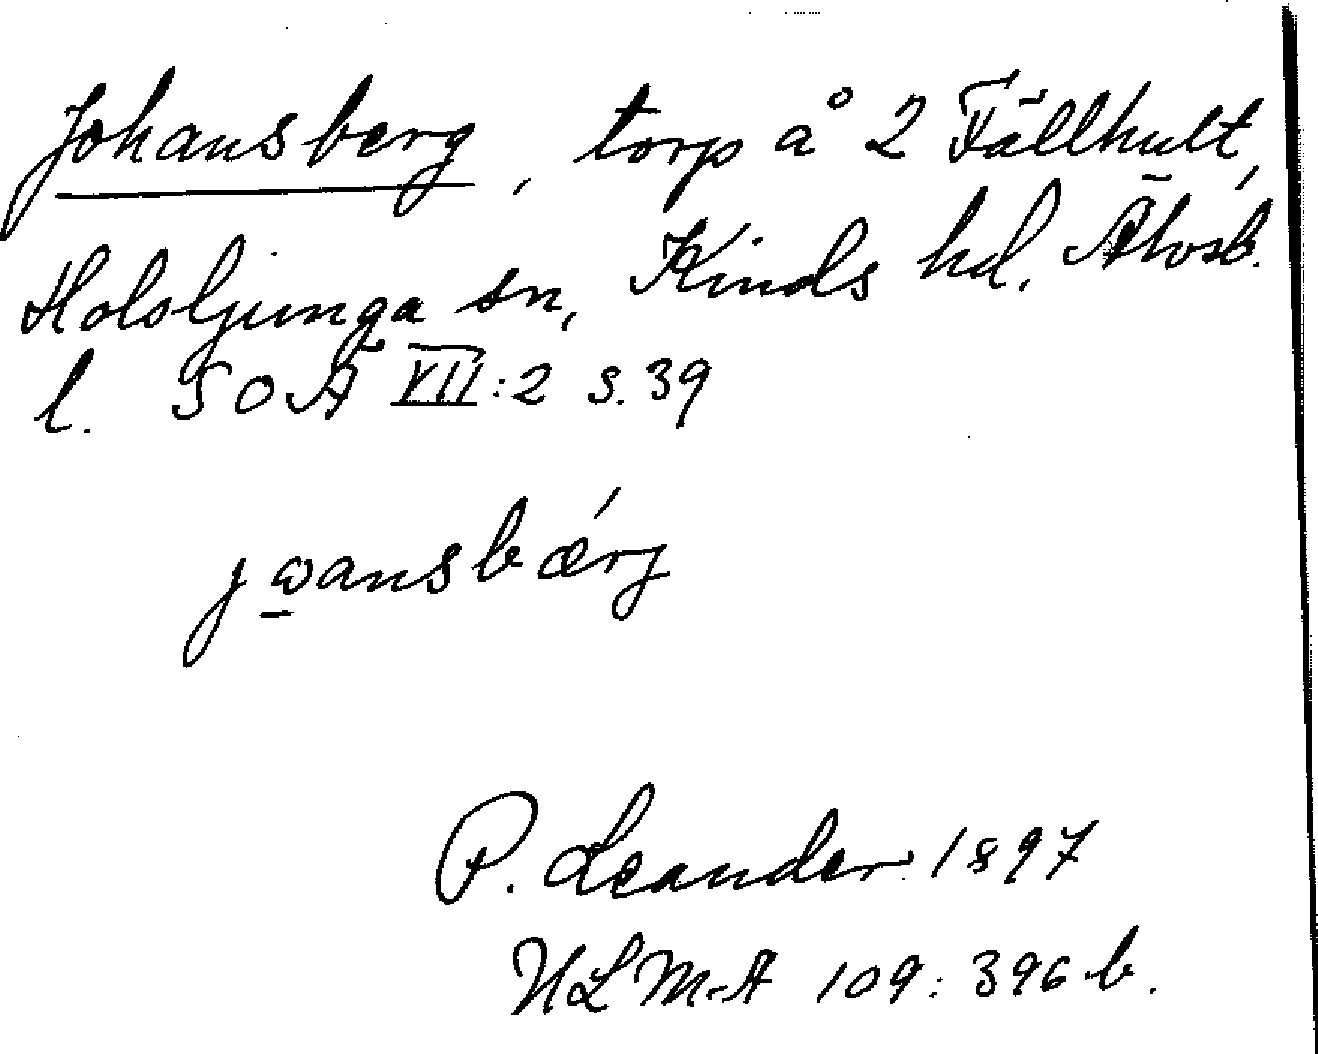 Johansberg, torp å 2 Fällhult,
Holsljunga sn, Kinds hd. Älvsb.
l. SOÄ VII:2 s. 39
jωansbǽrj
P. Leander 1897
ULMA 109:396 b.